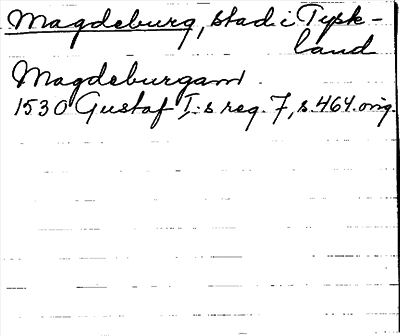 Magdeburg, stad i Tysk-
land
Magdeburgam
1530 Gustaf I:s reg. 7, s. 464. orig.